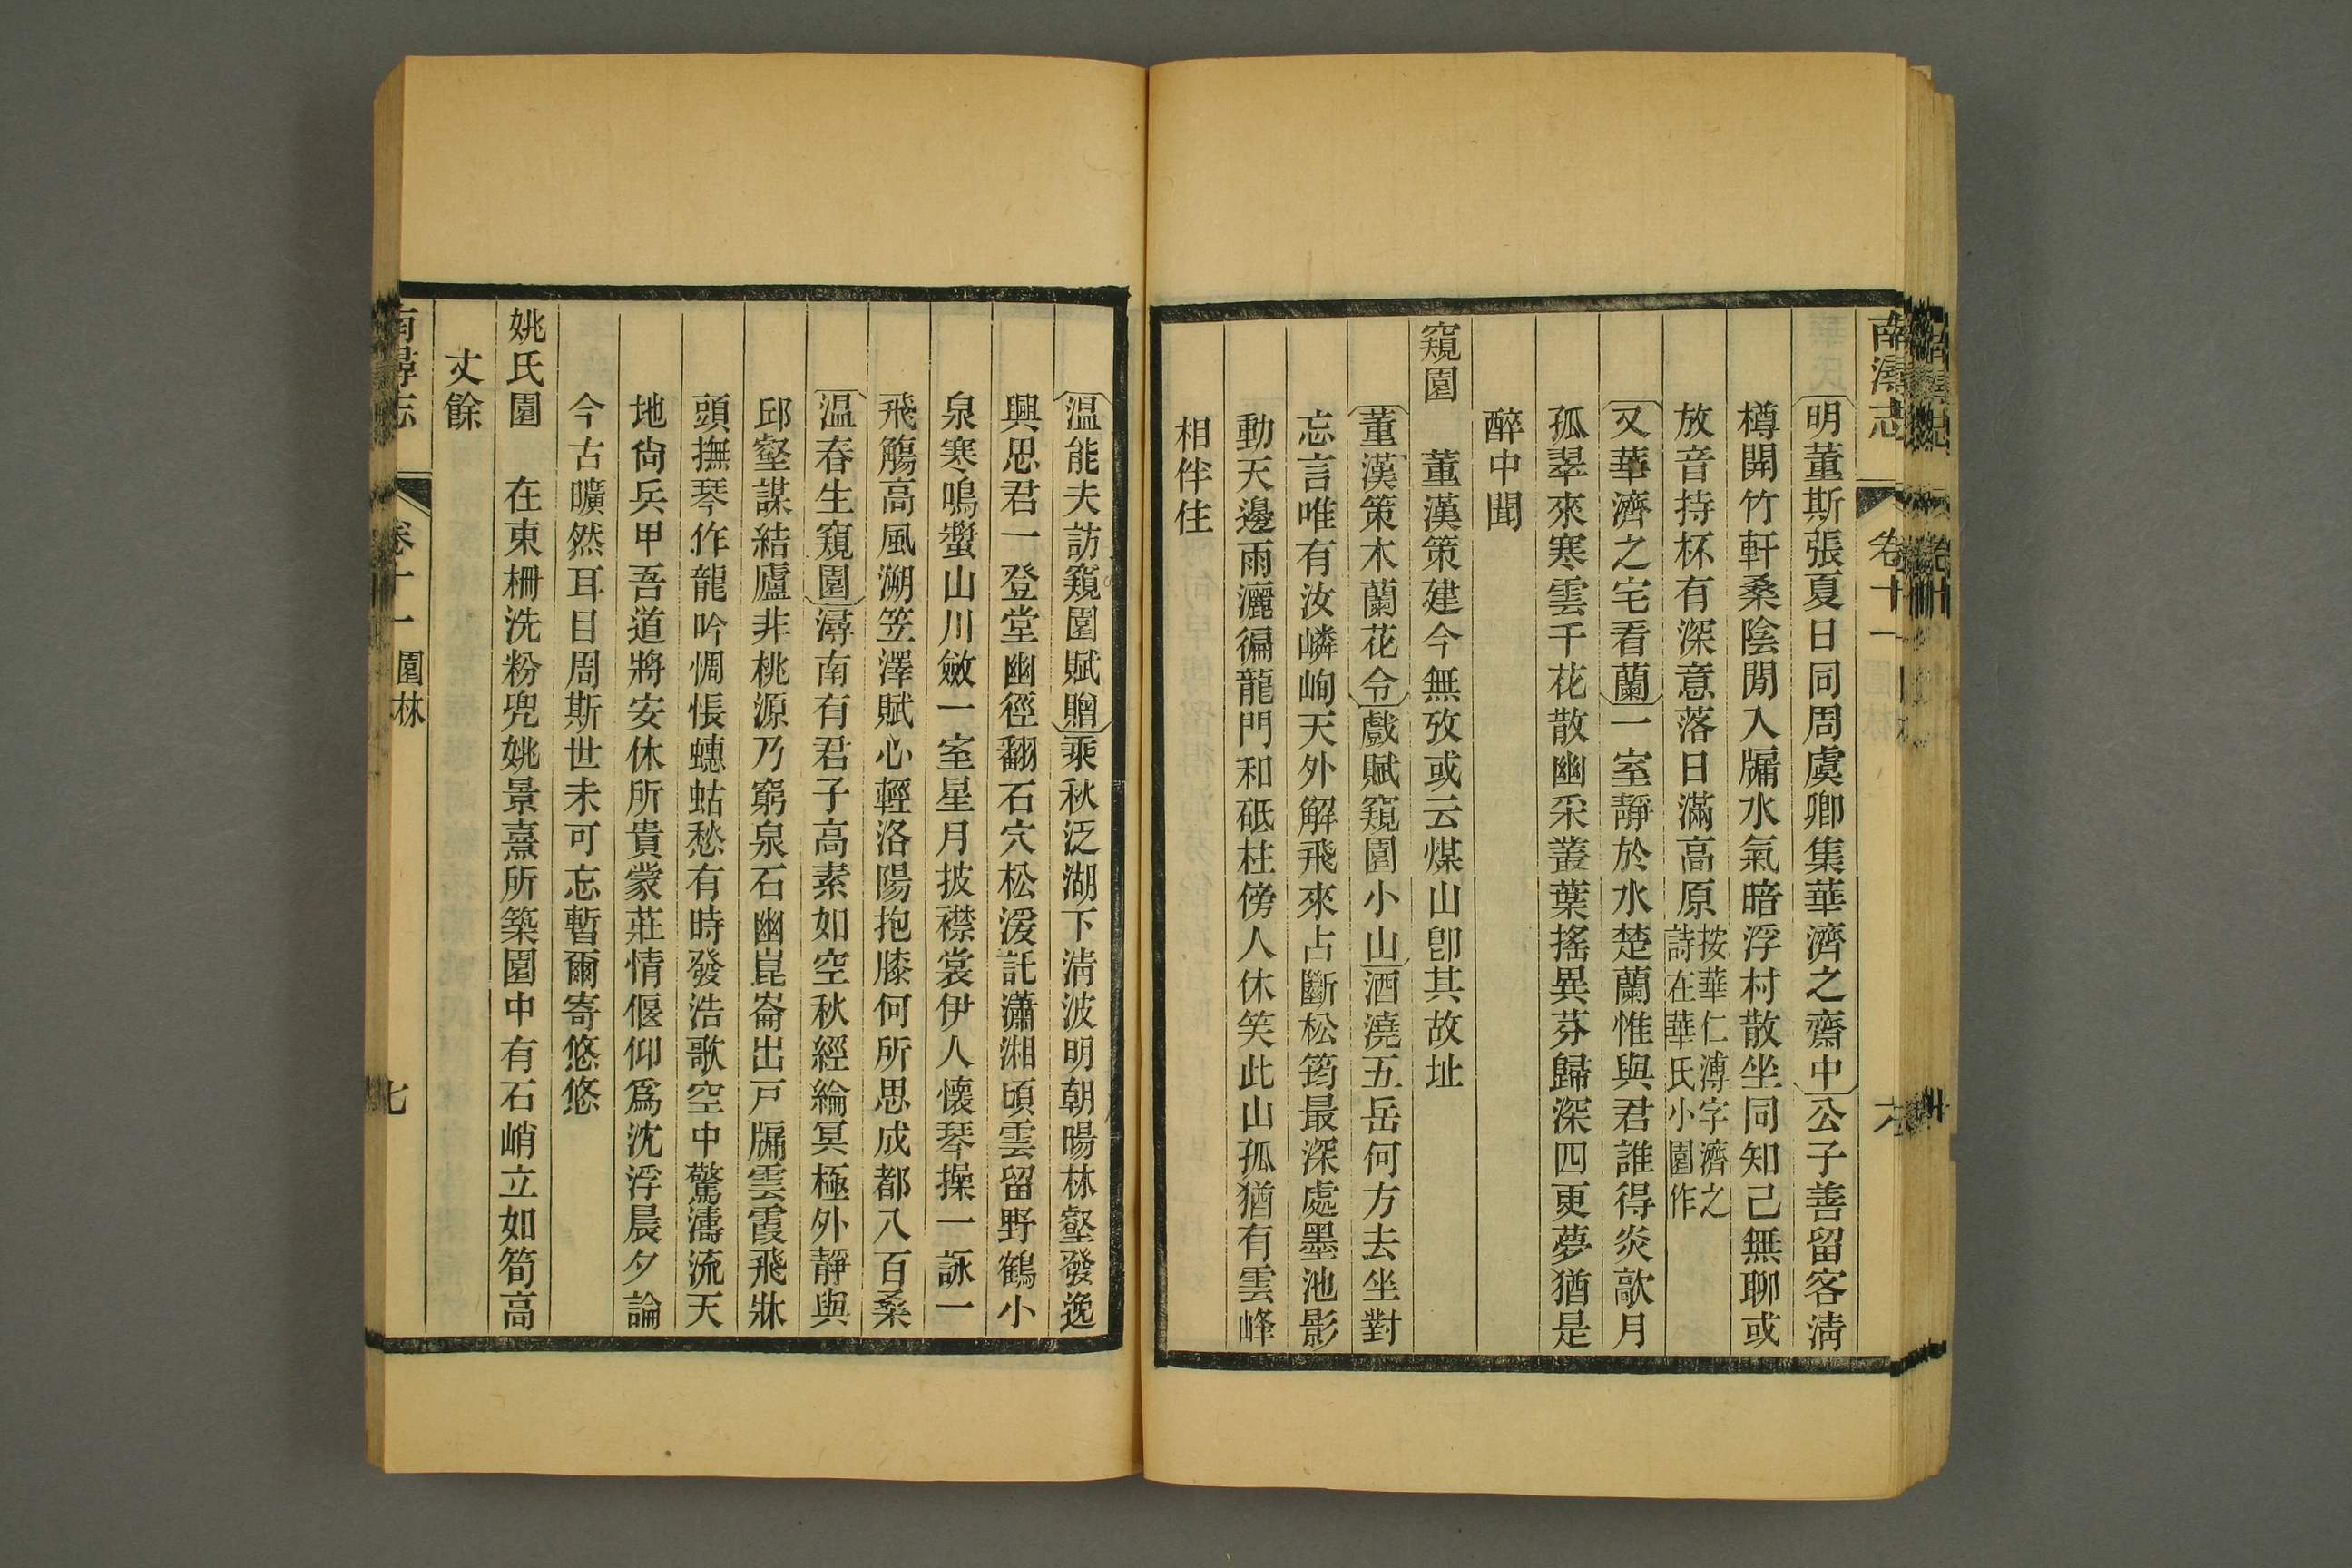 南潯志 卷十一 六
明董斯張夏日同周虞卿集華濟之齋中公子善留客淸
樽開竹軒桑陰閒入牖水氣暗浮村散坐同知己無聊或
放音持杯有深意落日滿高原按華仁溥字濟之詩在華氏小園作
又華濟之宅看蘭一室靜於水楚蘭惟與君誰得炎歊月
孤翠來寒雲千花散幽采叢葉搖異芬歸深四更夢猶是
醉中聞
窺園 董漢策建今無攷或云煤山卽其故址
董漢策木蘭花令戲賦窺園小山酒澆五岳何方去坐對
忘言唯有汝嶙峋天外解飛來占斷松筠最深處墨池影
動天邊雨灑徧龍門和砥柱傍人休笑此山孤猶有雲峰
相伴住
温能夫訪窺園賦贈乘秋泛湖下淸波明朝暘林壑發逸
興思君一登堂幽徑翻石穴松湲託瀟湘頃雲留野鶴小
泉寒鳴螿山川斂一室星月披襟裳伊人懷琴操一詠一
飛觴高風溯笠澤賦心輕洛陽抱膝何所思成都八百桑
温春生窺園潯南有君子高素如空秋經綸冥極外靜與
邱壑謀結廬非桃源乃窮泉石幽崑崙出戸牖雲霞飛牀
頭撫琴作龍吟惆悵蟪蛄愁有時發浩歌空中驚濤流天
地尙兵甲吾道將安休所貴蒙莊情偃仰爲沈浮晨夕論
今古曠然耳目周斯世未可忘暫爾寄悠悠
姚氏園 在東柵洗粉兜姚景熹所築園中有石峭立如筍高
丈餘
南潯志 卷十一 園林 七